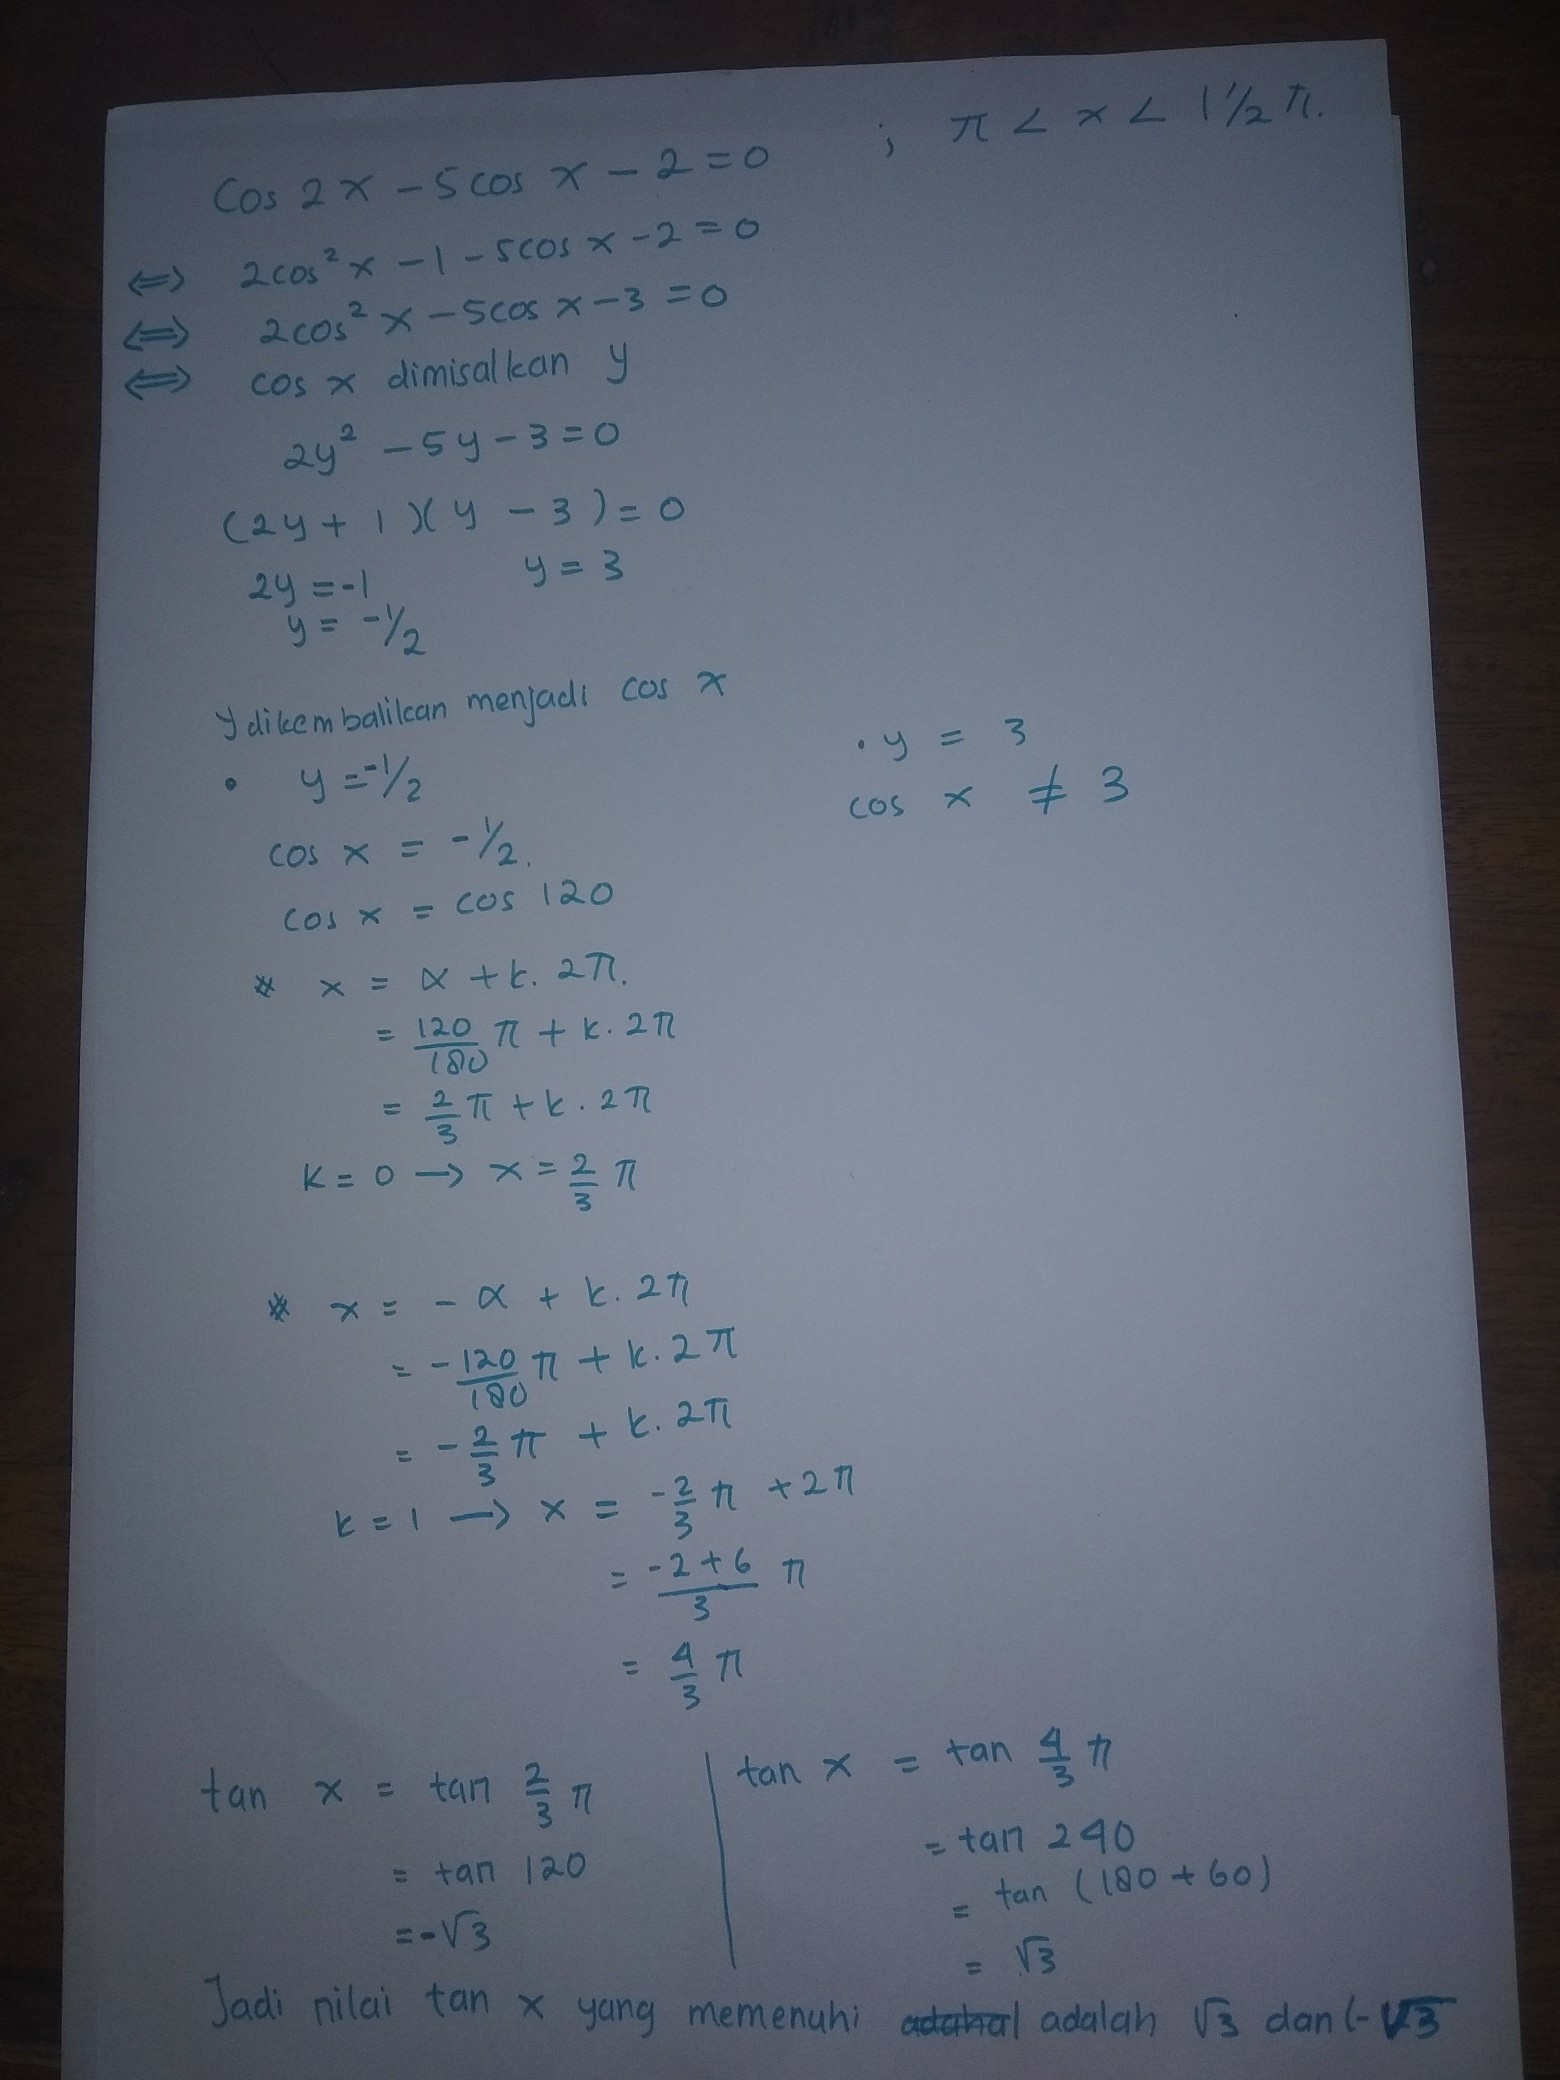 cos 2x - 5 cos x - 2 = 0 ; π < x < 1 1/2 π.
⇔ 2cos²x - 1 - 5cos x - 2 = 0
⇔ 2cos²x - 5cos x - 3 = 0
⇔ cos x dimisalkan y
2y² - 5y - 3 = 0
(2y + 1)(y - 3) = 0
2y = -1 y = 3
y = -1/2
y dikembalikan menjadi cos x
• y = -1/2
cos x = -1/2.
cos x = cos 120
• y = 3
cos x ≠ 3
* x = α + k. 2π.
= 120/180 π + k. 2π
= 2/3 π + k. 2π
k = 0 → x = 2/3 π
* x = -α + k. 2π
= -120/180 π + k. 2π
= -2/3 π + k. 2π
k = 1 → x = -2/3 π + 2π
= (-2+6)/3 π
= 4/3 π
tan x = tan 2/3 π
= tan 120
= -√3
tan x = tan 4/3 π
= tan 240
= tan (180 + 60)
= √3
Jadi nilai tan x yang memenuhi adalah √3 dan (-√3